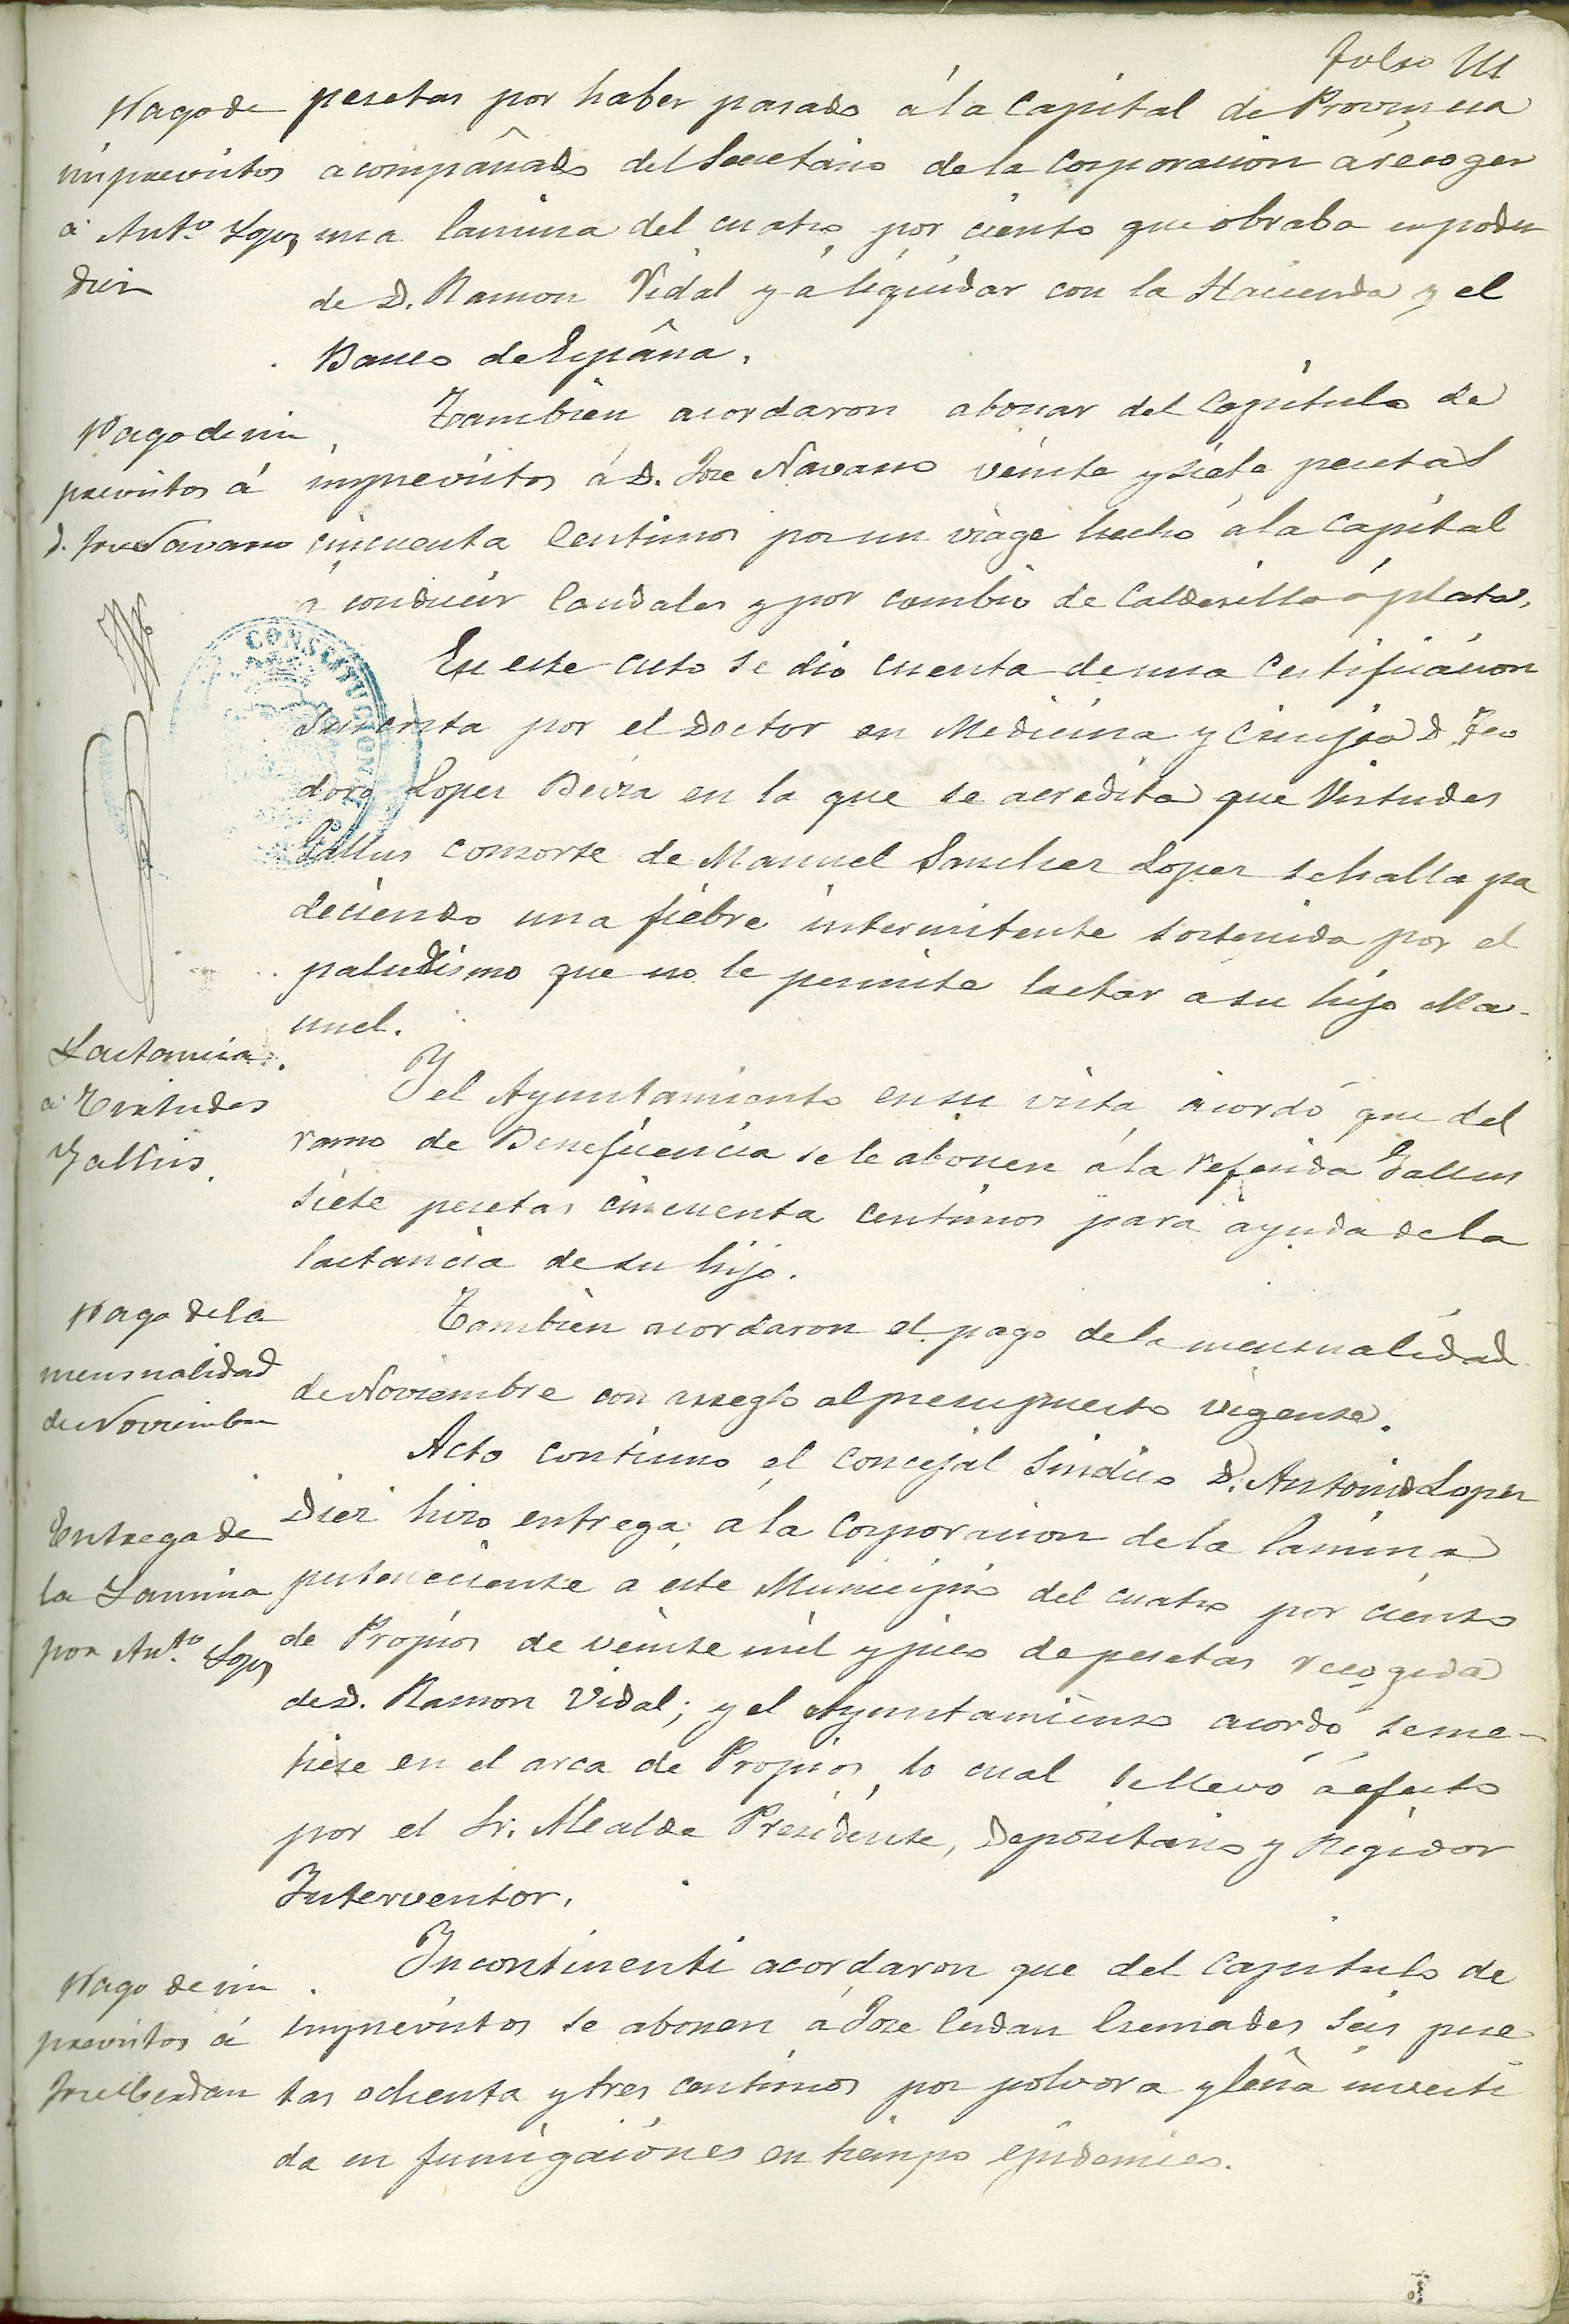 Folio 111
Pago de
imprevistos
á Ant.º Lopez
Diez
pesetas por haber pasado á la Capital de Provincia
acompañado del Secretario de la Corporacion á recoger
una lamina del cuatro por ciento que obraba en poder
de D. Ramon Vidal y á liquidar con la Hacienda y el
Banco de España.
Pago de im
previstos á
D. Jose Navarro
Tambien acordaron abonar del Capitulo de
imprevistos á D. Jose Navarro veinte y siete pesetas
cincuenta centimos por un viage hecho á la Capital
á conducir caudales y por cambio de Calderilla á plata.
CONSTITUCIONAL
En este acto se dio cuenta de una Certificacion
suscrita por el Doctor en Medicina y Cirujia D. Teo
doro Lopez Deiza en la que se acredita que Virtudes
Gallus consorte de Manuel Sanchez Lopez se halla pa
deciendo una fiebre intermitente sostenida por el
paludismo que no le permite lactar a su hijo Ma-
nuel.
Lactancia
á Virtudes
Gallus.
Y el Ayuntamiento en su vista acordó que del
ramo de Beneficencia se le abonen á la referida Gallus
siete pesetas cincuenta centimos para ayuda de la
lactancia de su hijo.
Pago de la
mensualidad
de Noviembre
Tambien acordaron el pago de la mensualidad
de Noviembre con arreglo al presupuesto vigente.
Entrega de
la Lamina
por Ant.º Lopez
Acto continuo el Concejal Sindico D. Antonio Lopez
Diez hizo entrega á la Corporacion de la lamina
perteneciente a este Municipio del cuatro por ciento
de Propios de veinte mil y pico de pesetas recogida
de D. Ramon Vidal; y el Ayuntamiento acordó se me-
tiese en el arca de Propios, lo cual se llevó á efecto
por el Sr. Alcalde Presidente, Depositario y Regidor
Interventor.
Pago de im
previstos á
Jose Cerdan
Incontinenti acordaron que del Capitulo de
imprevistos se abonen á Jose Cerdan Cremades seis pese
tas ochenta y tres centimos por polvora y leña inverti
da en fumigaciones en tiempo epidemico.